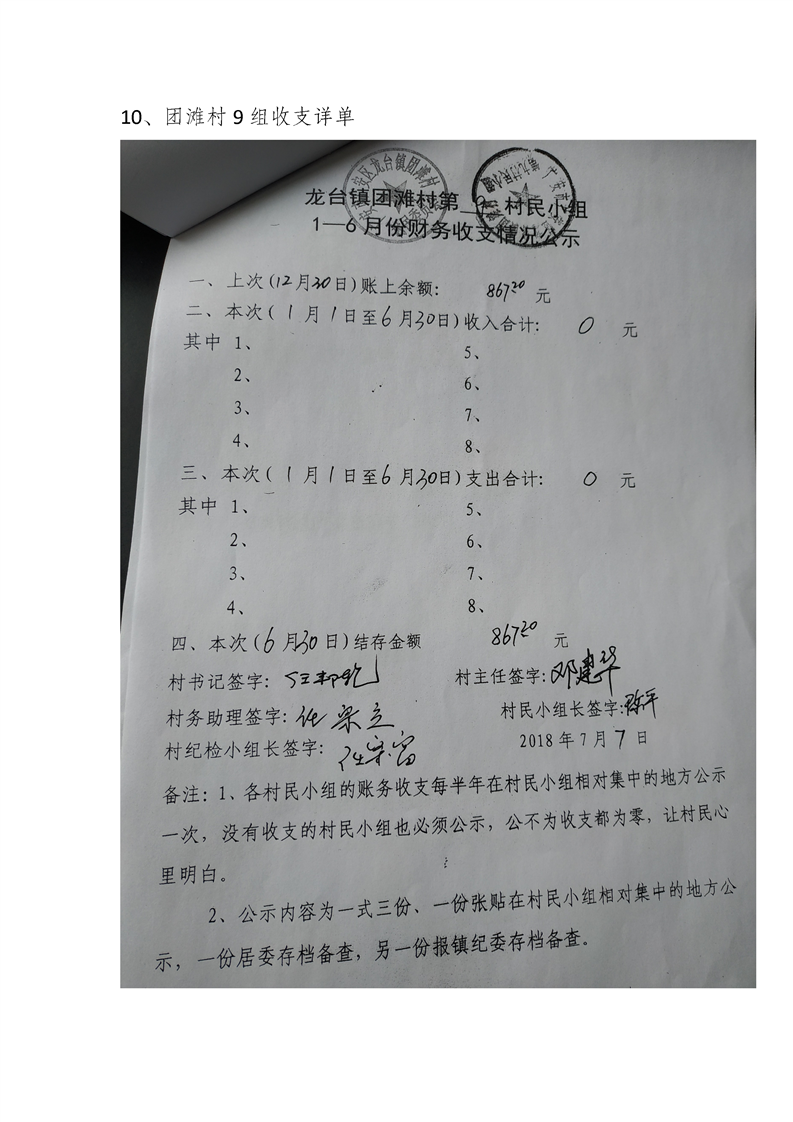 10、团滩村 9 组收支详单
龙台镇团滩村第 村民小组
1—6月份财务收支情况公示
一、上次(12月30日)账上余额: 867.20 元
二、本次(1月1日至6月30日)收入合计: 0 元
其中 1、 5、
2、 6、
3、 7、
4、 8、
三、本次(1月1日至6月30日)支出合计: 0 元
其中 1、 5、
2、 6、
3、 7、
4、 8、
四、本次(6月30日)结存金额 867.20 元
村书记签字: 村主任签字:邓建华
村务助理签字:任荣立 村民小组长签字:
村纪检小组长签字: 2018年7月7日
备注:1、各村民小组的账务收支每半年在村民小组相对集中的地方公示
一次,没有收支的村民小组也必须公示,公不为收支都为零,让村民心
里明白。
2、公示内容为一式三份、一份张贴在村民小组相对集中的地方公
示,一份居委存档备查,另一份报镇纪委存档备查。